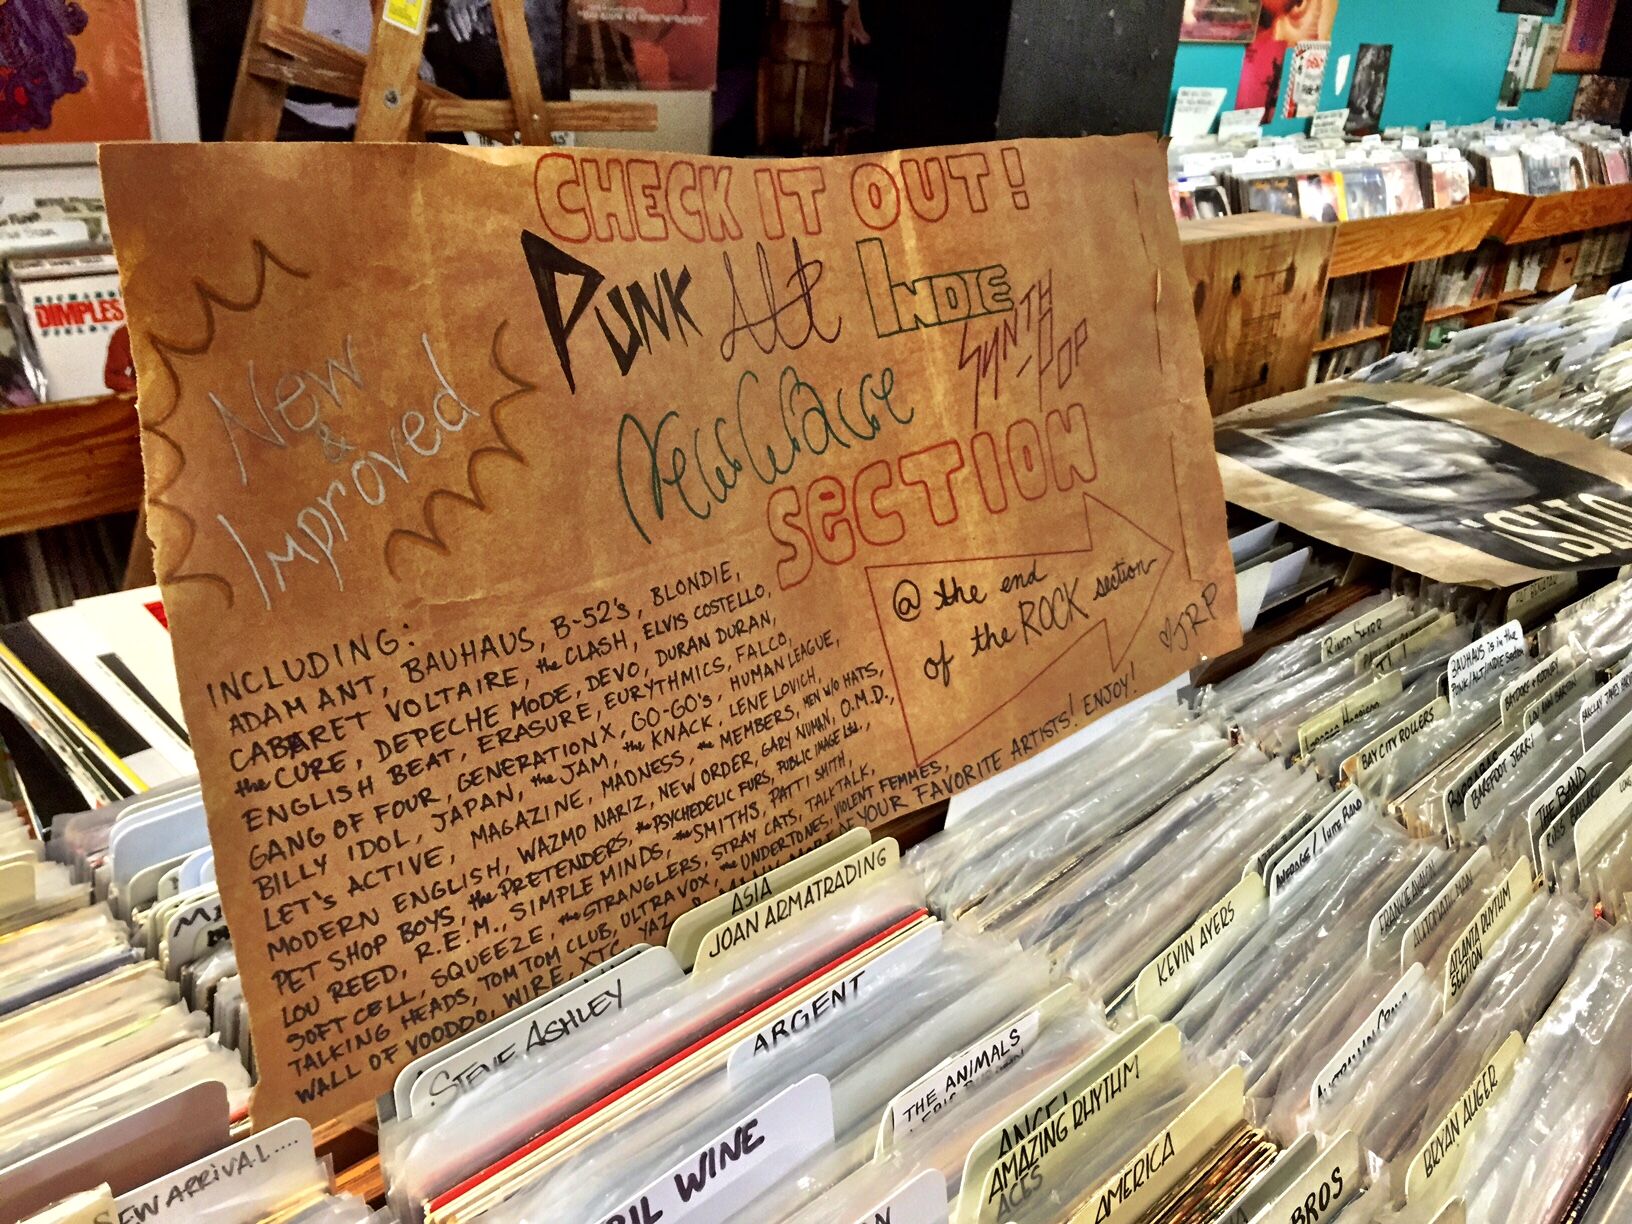 CHECK IT OUT!
PUNK Alt INDIE
SYNTH-POP
New Wave
SECTION
New
&
Improved
@ the end
of the ROCK section
♡JRP
INCLUDING:
ADAM ANT, BAUHAUS, B-52's, BLONDIE,
CABARET VOLTAIRE, the CLASH, ELVIS COSTELLO,
the CURE, DEPECHE MODE, DEVO, DURAN DURAN,
ENGLISH BEAT, ERASURE, EURYTHMICS, FALCO,
GANG OF FOUR, GENERATION X, GO-GO's, HUMAN LEAGUE,
BILLY IDOL, JAPAN, the JAM, the KNACK, LENE LOVICH,
LET'S ACTIVE, MAGAZINE, MADNESS, the MEMBERS, MEN W/O HATS,
MODERN ENGLISH, WAZMO NARIZ, NEW ORDER, GARY NUMAN, O.M.D.,
PET SHOP BOYS, the PRETENDERS, the PSYCHEDELIC FURS, PUBLIC IMAGE Ltd.,
LOU REED, R.E.M., SIMPLE MINDS, the SMITHS, PATTI SMITH,
SOFT CELL, SQUEEZE, the STRANGLERS, STRAY CATS, TALK TALK,
TALKING HEADS, TOM TOM CLUB, ULTRAVOX, the UNDERTONES, VIOLENT FEMMES,
WALL OF VOODOO, WIRE, XTC, YAZ & MANY MORE OF YOUR FAVORITE ARTISTS! ENJOY!
DIMPLES
ASIA
JOAN ARMATRADING
STEVE ASHLEY
ARGENT
THE ANIMALS
ANGEL
AMAZING RHYTHM
ACES
AMERICA
NEW ARRIVAL....
WINE
KEVIN AYERS
AVERAGE WHITE BAND
FRANKIE AVALON
AUTOMATIC MAN
ATLANTA RHYTHM
SECTION
BRYAN AUGER
BROS
BAUHAUS is in the
PUNK/ALT/INDIE Section
BAY CITY ROLLERS
BAREFOOT JERRY
THE BAND
RUSS BALLARD
BATDORF & RODNEY